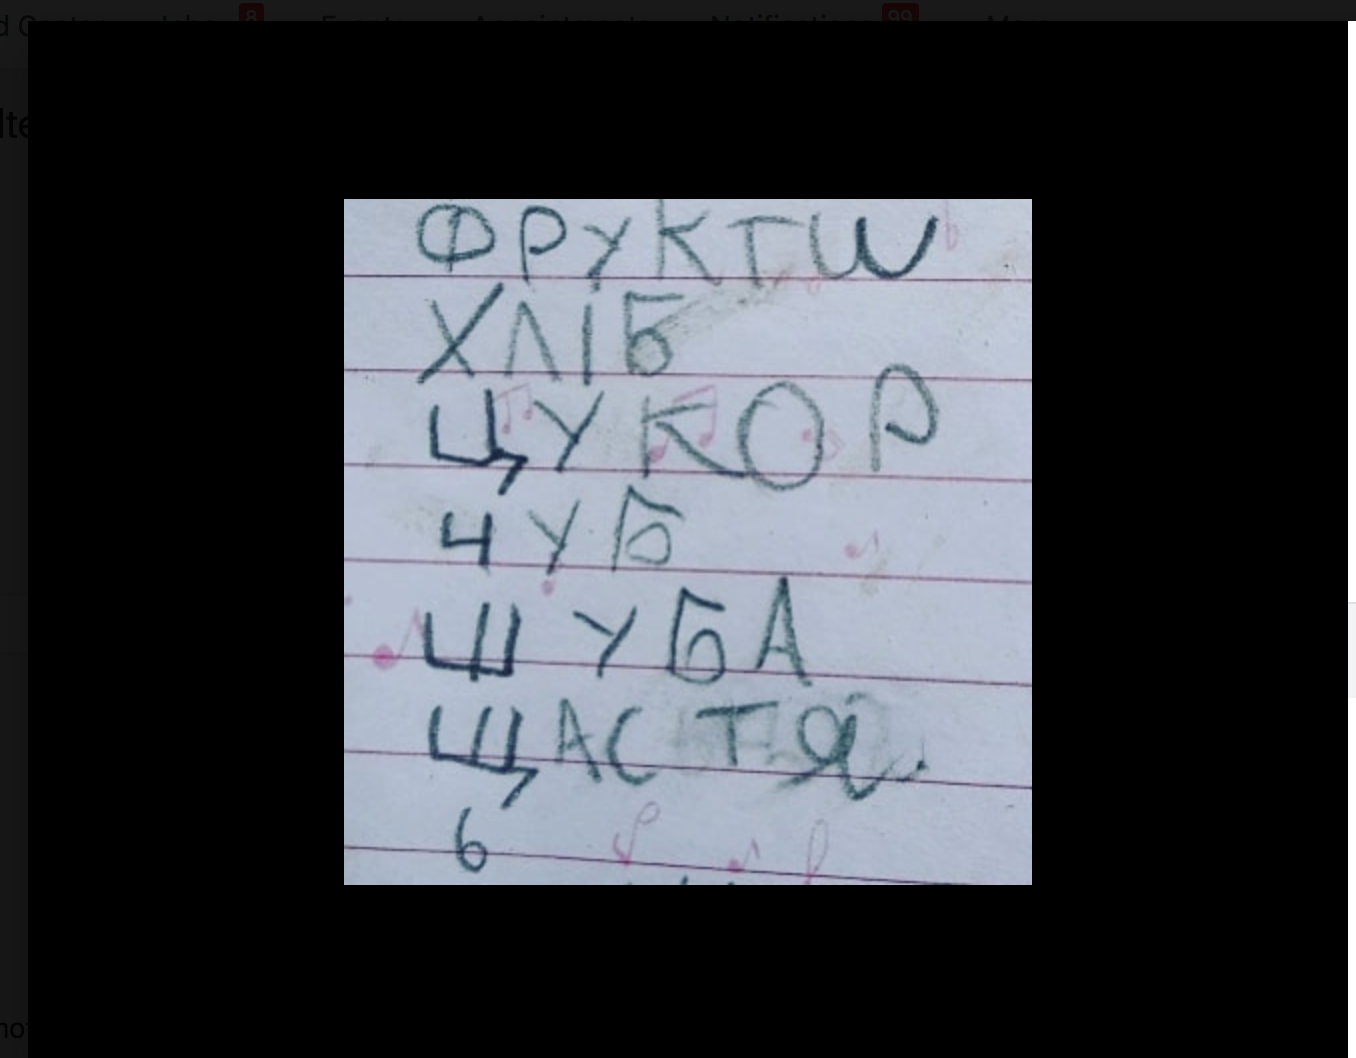 8 99
ФРУКТШ
ХЛІБ
ЦУКОР
ЧУБ
ШУБА
ЩАСТЯ
Ь